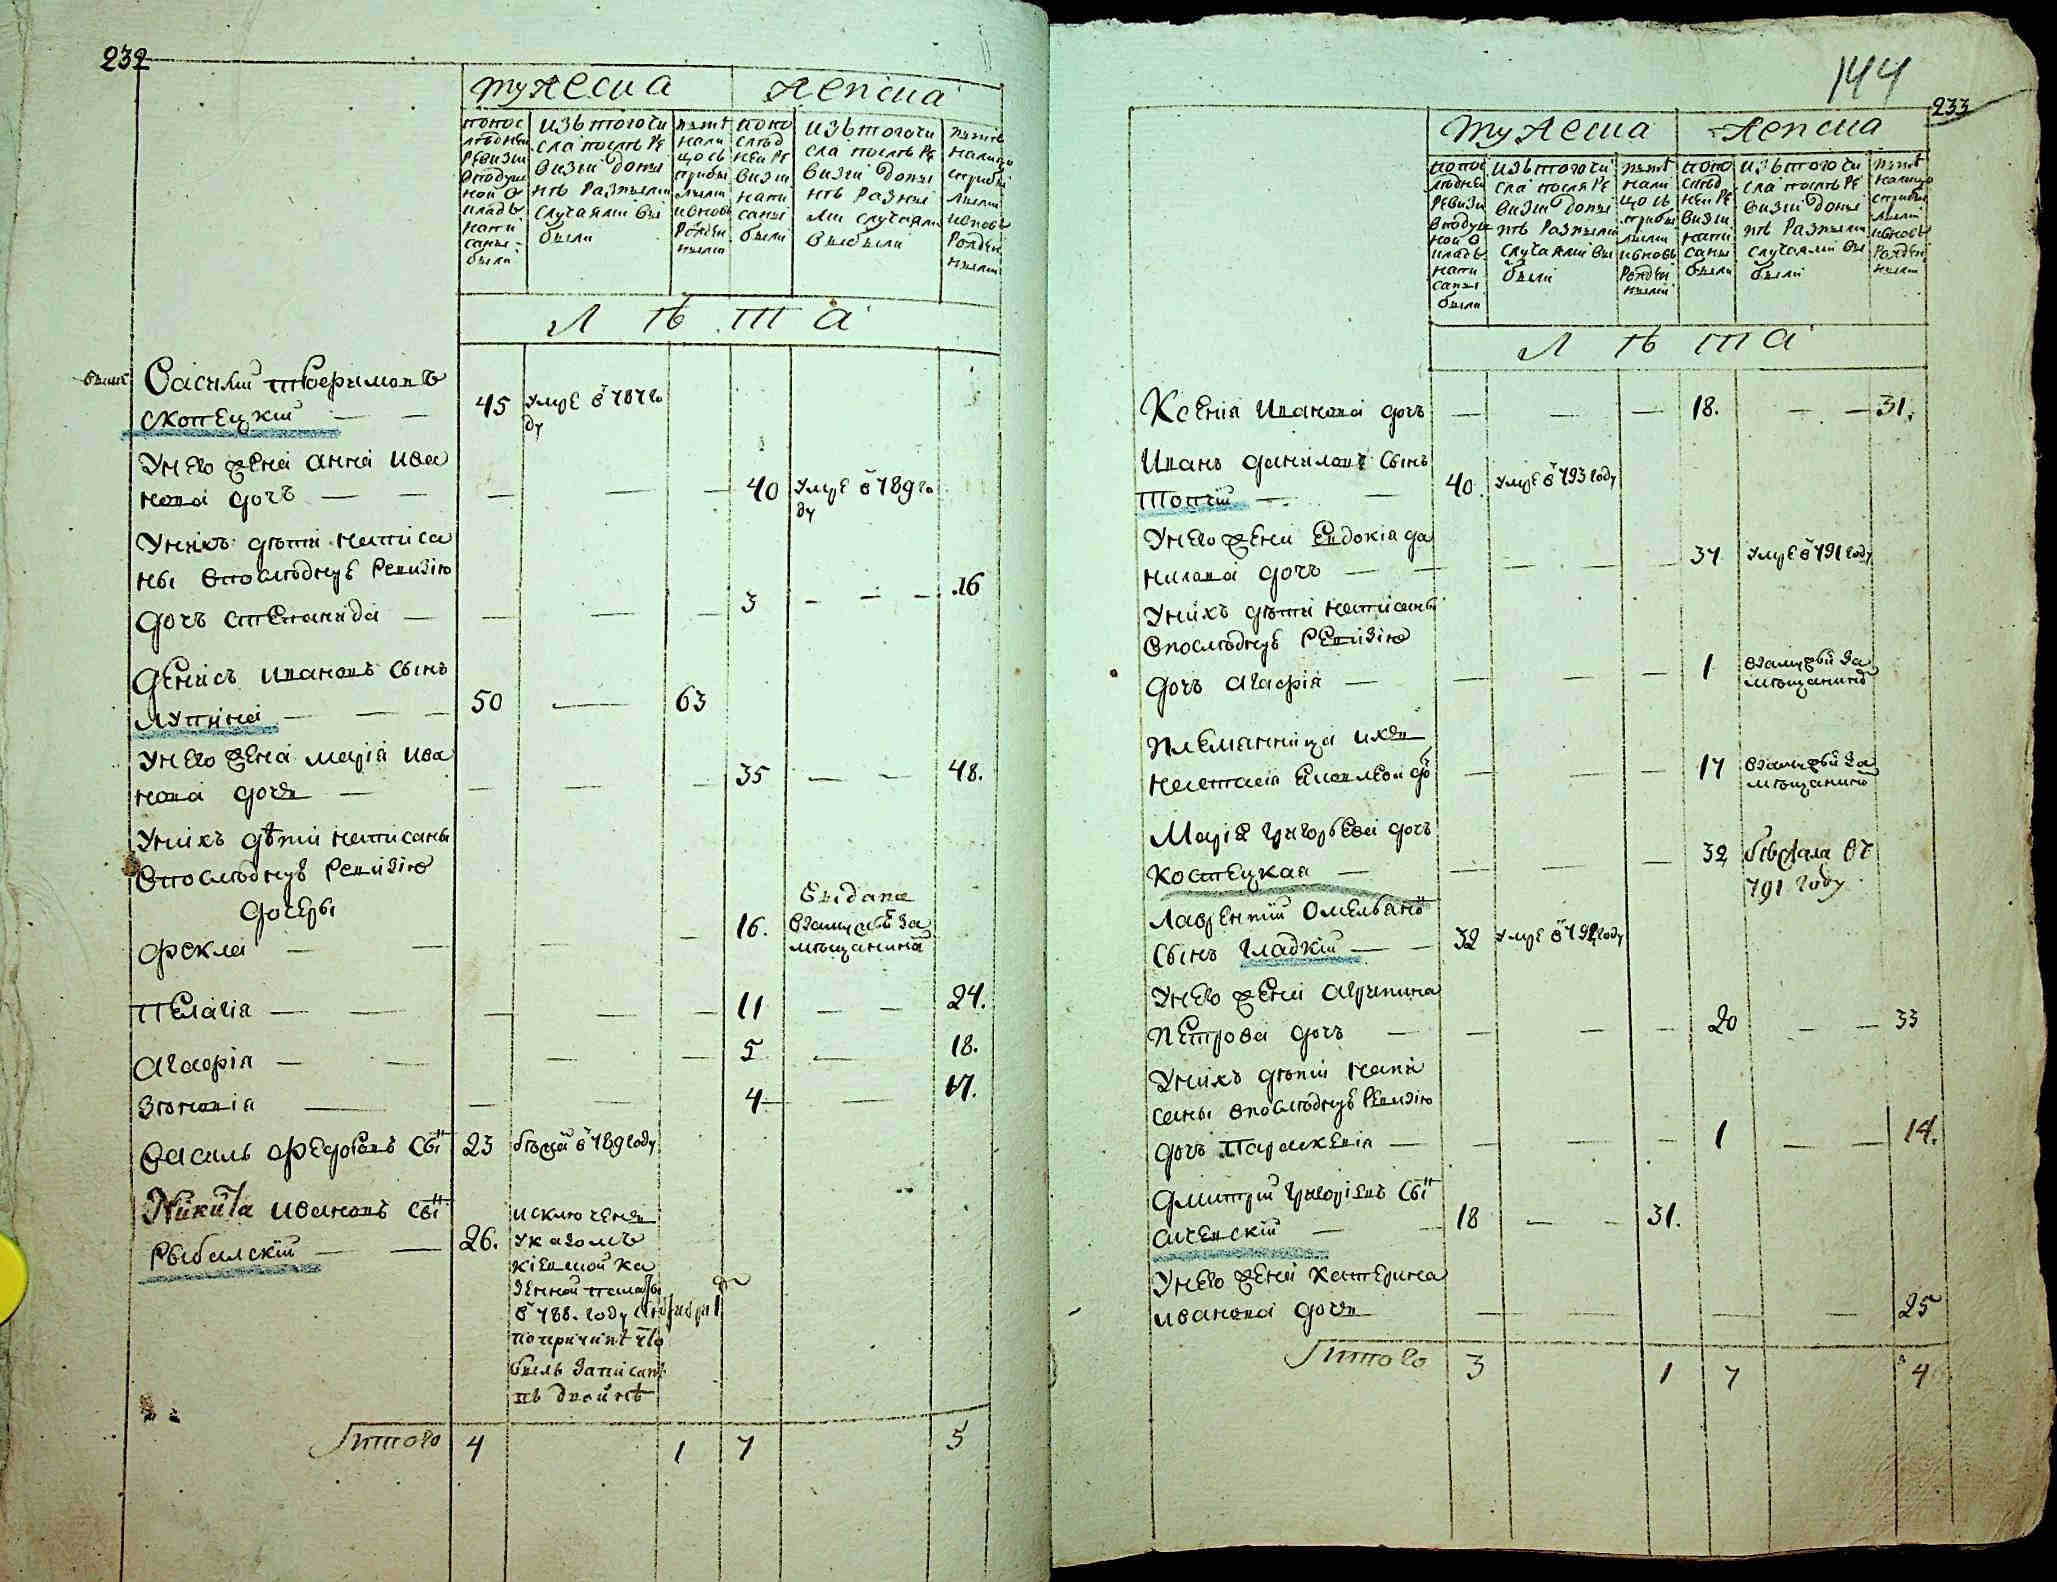 232
Мужеска
Женска
по пос
лѣдней
ревизіи
в подуш
ной о
кладъ
напи
саны
были
изъ того чи
сла послѣ ре
визіи до ны
нѣ разными
случаями вы
были
нынѣ
нали
цо съ
прибы
лыми
и вновь
рожден
ными
по по
слѣд
ней ре
визіи
напи
саны
были
изъ того чи
сла послѣ ре
визіи до ны
нѣ разны
ми случаями
выбыли
нынѣ
налицо
с прибы
лыми
и вновь
рожден
ными
Лѣта
Василій
45 умре в 787 го
ду
У него жена Анна Ива
нова дочь — — — — — 40 умре в 789 го
ду
У нихъ дѣти написа
ны в последнуѣ ревизію
дочь Степанида — — — — 3 — — — 16
Денисъ Ивановъ сынъ
Лупина — — — 50 — 63
У него жена Марія Ива
нова дочь — — — — 35 — — 48.
У нихъ дѣти написаны
в последнуѣ ревизію
дочеры
Фекла — — — — 16. выдана
в замужъѣ за
мѣщанина
Пелагія — — — — — 11 — — 24.
Агафія — — — — 5 — 18.
Зѣновія — — — — 4 — 17.
Василь Федоровъ сынъ 23 бѣжа в 789 году
Никита Ивановъ сынъ
Рыбалскій — — 26. исключенъ
указомъ
Кіевской ка
зенной палаты
в 788. году
по причинѣ что
былъ записанъ
въ двойнѣ
Итого 4 1 7 5
144
233
Мужеска
Женска
по пос
лѣдней
ревизіи
в подуш
ной о
кладъ
напи
саны
были
изъ того чи
сла послѣ ре
визіи до ны
нѣ разными
случаями вы
были
нынѣ
нали
цо съ
прибы
лыми
и вновь
рожден
ными
по по
слѣд
ней ре
визіи
напи
саны
были
изъ того чи
сла послѣ ре
визіи до ны
нѣ разными
случаями вы
были
нынѣ
налицо
с прибы
лыми
и вновь
рожден
ными
Лѣта
Ксенія Иванова дочь — — — 18. — — 31.
Иванъ Даниловъ сынъ
— — 40. умре в 793 году
У него жена Евдокія Да
нилова дочь — — — — — 37 умре в 791 году
У нихъ дѣти написаны
в последнуѣ ревизію
дочь Агафія — — — — 1 в замужъѣ за
мѣщаниномъ
Племянница ихъ
Настасія дочь — — — 17 в замужъѣ за
мѣщаниномъ
Марія Григорьева дочь
Костецкая — — — — 32 бѣжала въ
791 году
Лаврентій Омельяновъ
сынъ Гладкій — — 32 умре в 792 году
У него жена Агрипина
Петрова дочь — — — — 20 — — 33
У нихъ дѣти напи
саны в последнуѣ ревизію
дочь Параскевія — — — — 1 — — 14.
Дмитрій Григоріевъ сынъ
Сичевскій — — 18 — — 31.
У него жена Катерина
Иванова дочь — — — — — 25
Итого 3 1 7 4